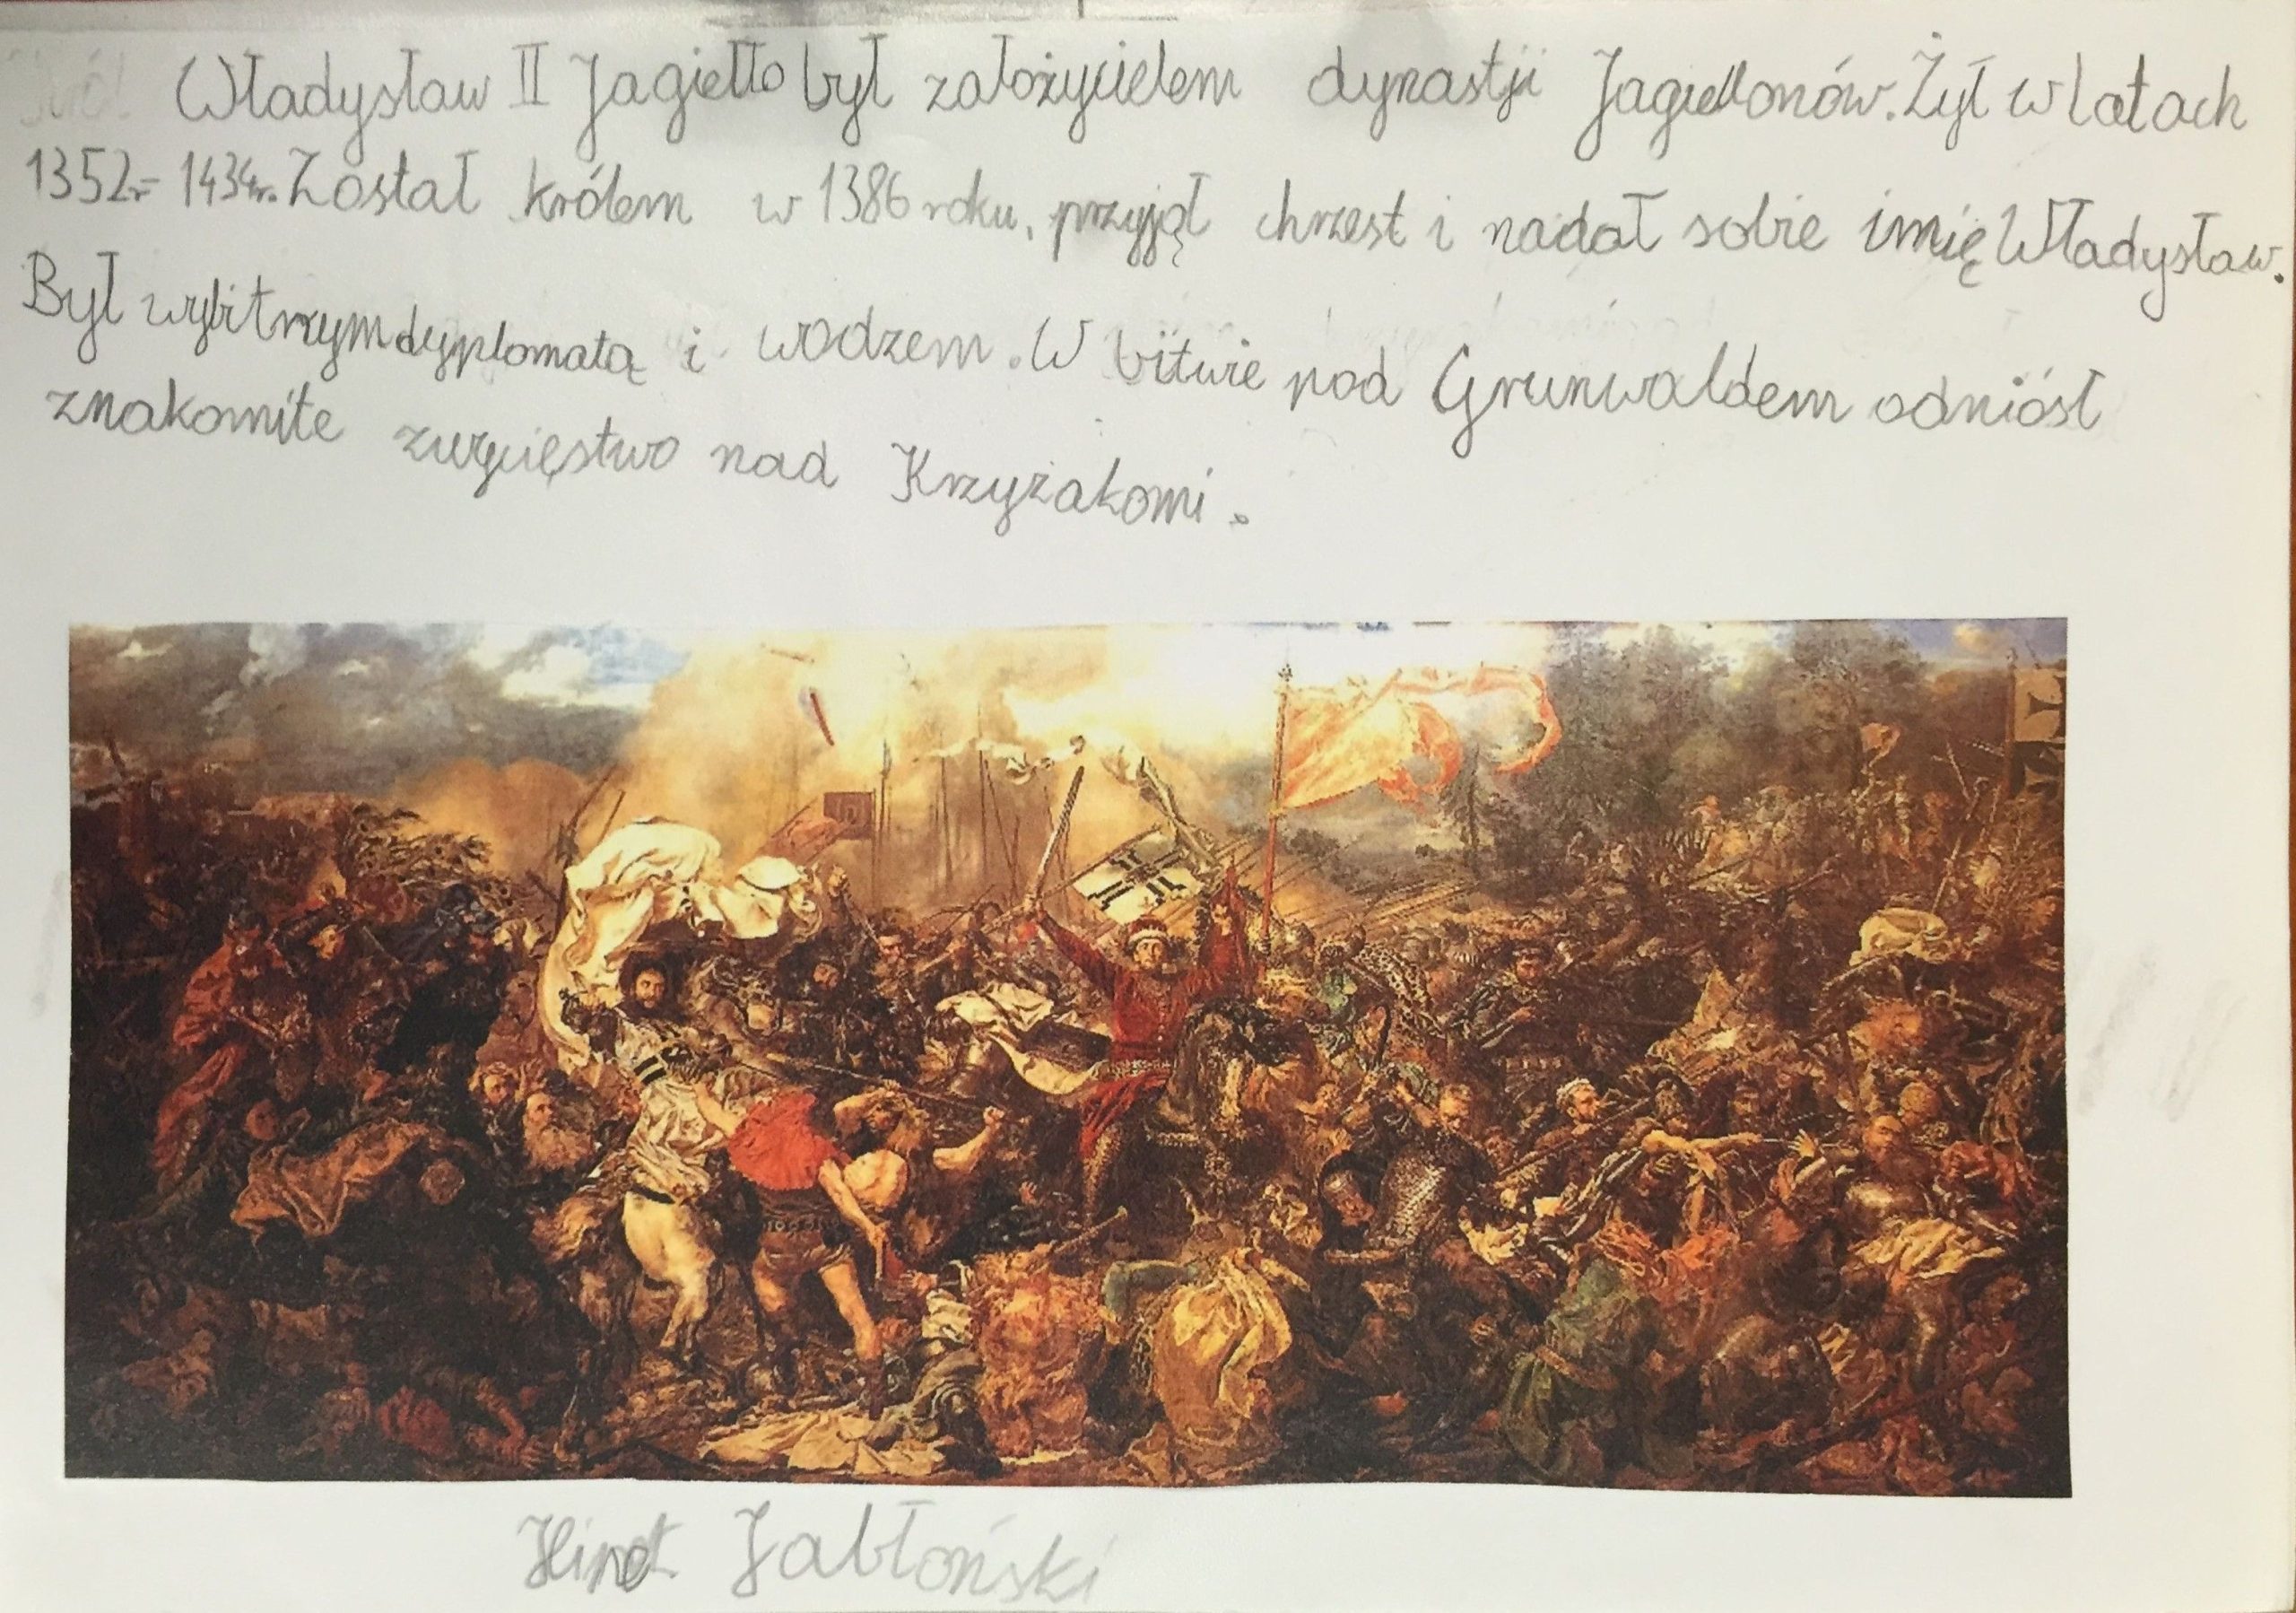 Władysław II Jagiełło był założycielem dynastji Jagiellonów. Żył w latach
1352r.- 1434r. Został królem w 1386 roku, przyjął chrzest i nadał sobie imię Władysław.
Był wybitnym dyplomatą i wodzem. W bitwie pod Grunwaldem odniósł
znakomite zwycięstwo nad Krzyżakomi.
Jabłoński